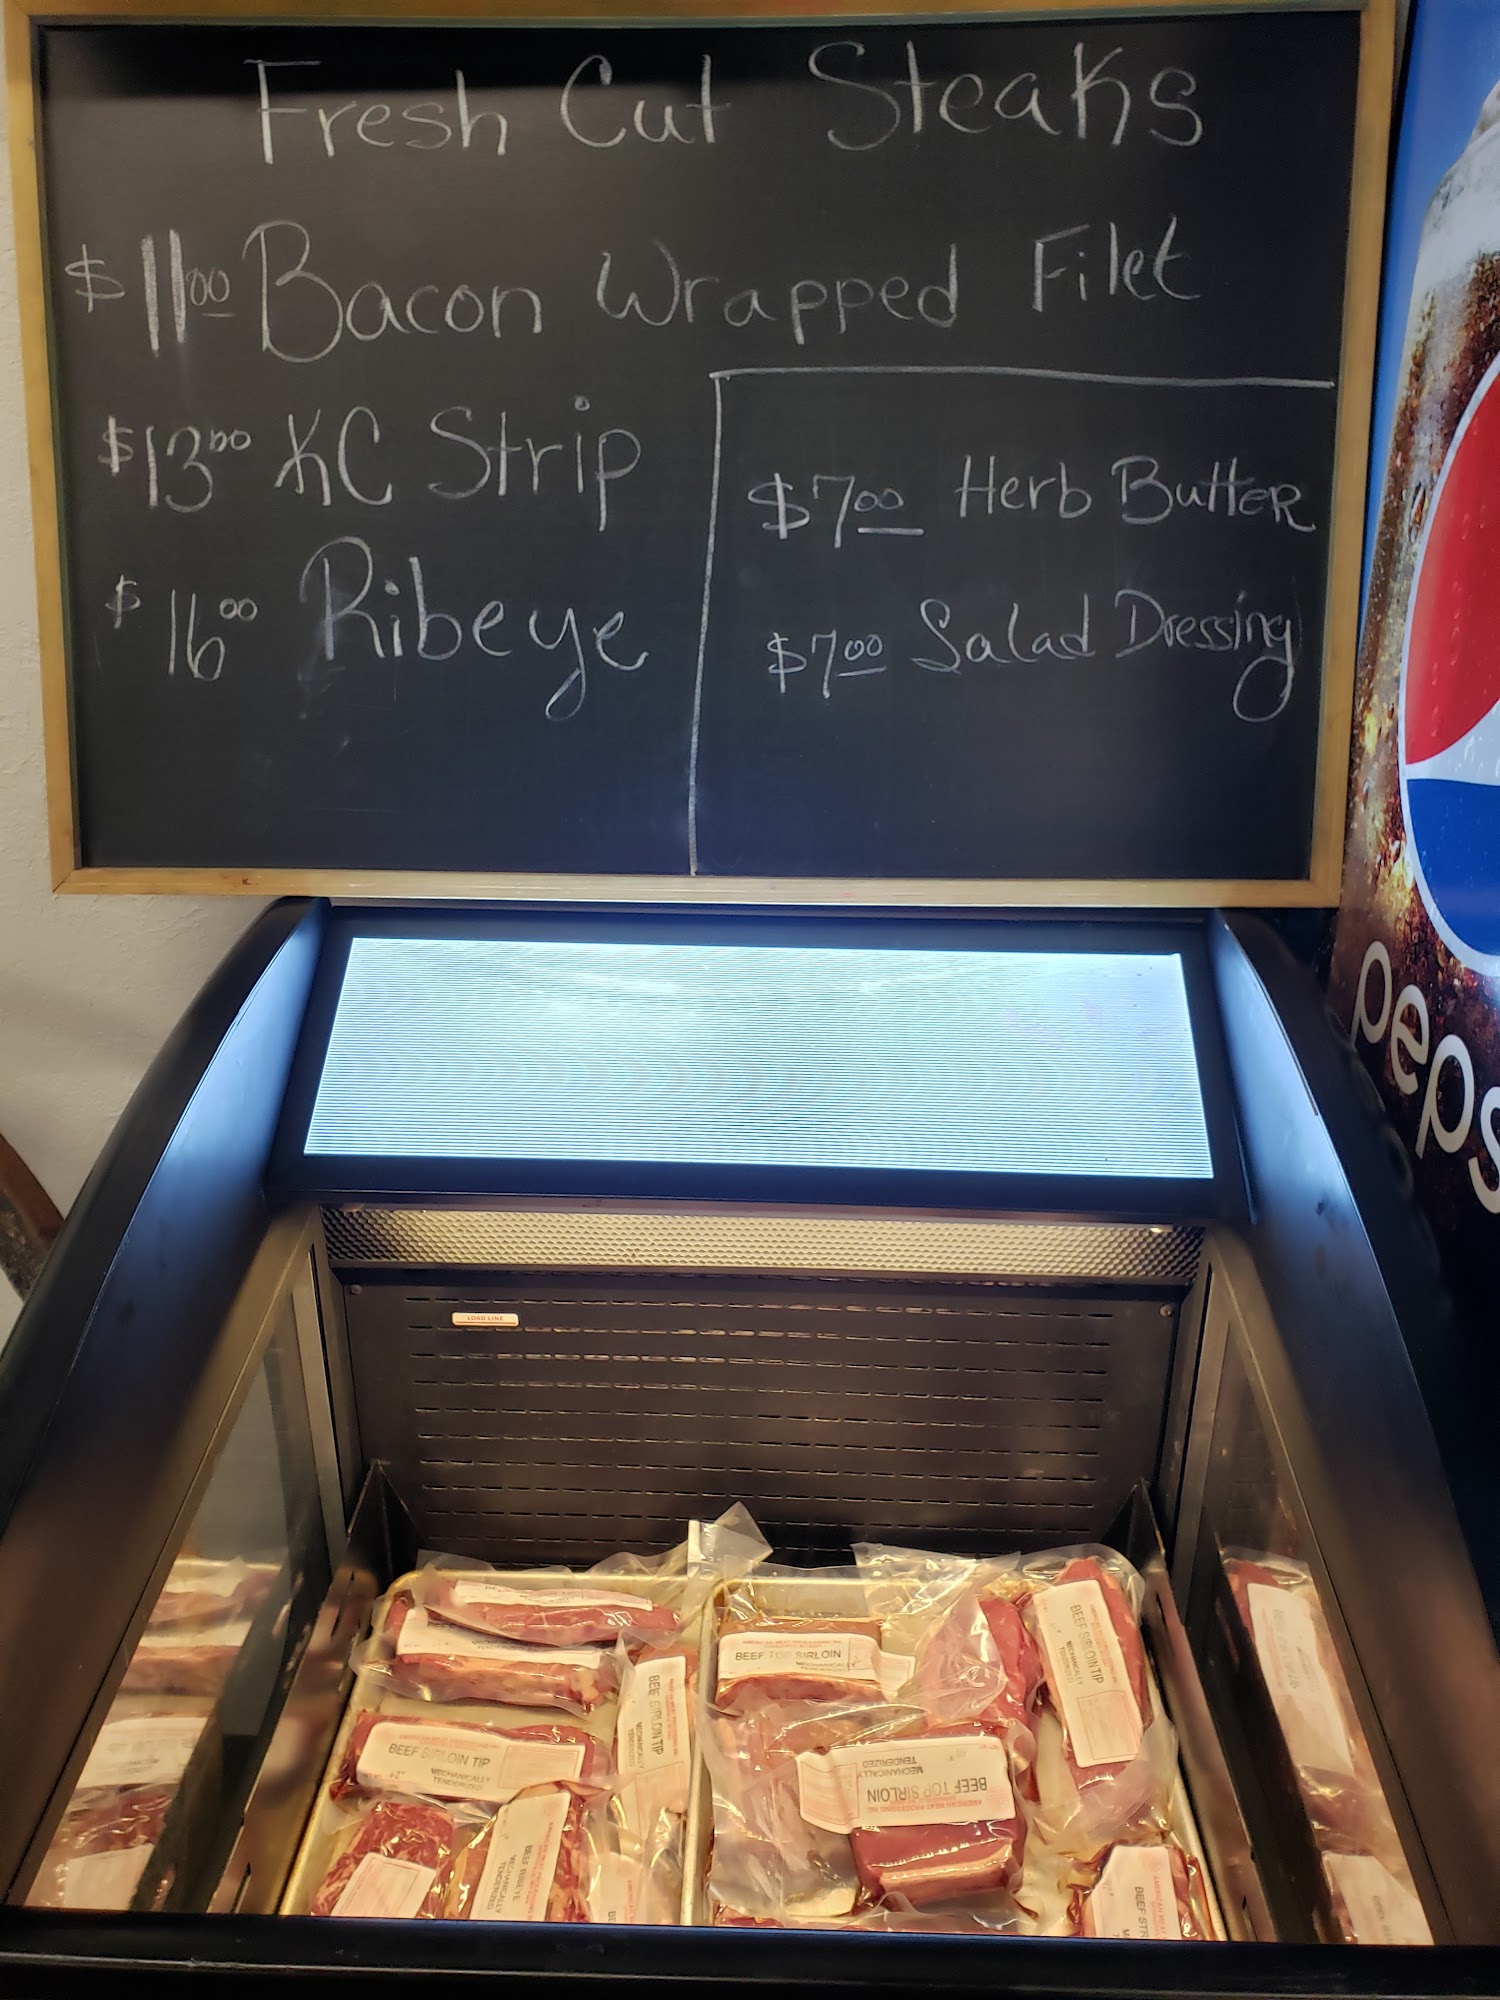 Fresh Cut Steaks
$11.00 Bacon Wrapped Filet
$13.00 KC Strip
$16.00 Ribeye
$7.00 Herb Butter
$7.00 Salad Dressing
peps
LOAD LINE
BEEF SIRLOIN TIP
MECHANICALLY
TENDERIZED
BEEF SIRLOIN TIP
MECHANICALLY
TENDERIZED
BEEF RIBEYE
MECHANICALLY
TENDERIZED
BEEF TOP SIRLOIN
MECHANICALLY
TENDERIZED
BEEF SIRLOIN TIP
MECHANICALLY
TENDERIZED
AMERICAN MEAT PROCESSING INC
BEEF TOP SIRLOIN
MECHANICALLY
TENDERIZED
BEEF STR